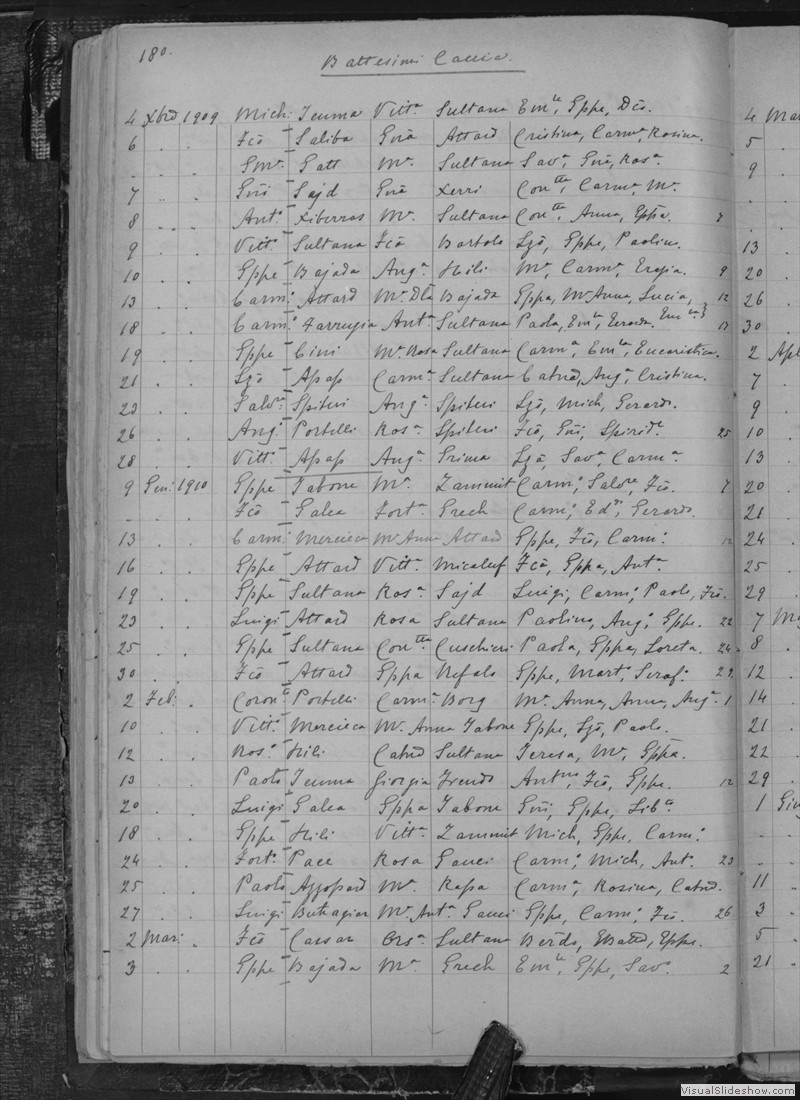 180.
Battesimi Caccia.
4 Xbre 1909 Mich: Jemma Vitt.a Sultana Em.le, Gppe, Dco.
6 . . Fco Saliba Gna Attard Cristina, Carm.a Rosina.
. . . Sm.o Gatt M.a Sultana Sav.a Gna, Ros.a
7 . . Gni Sajd Gna Xerri Con.tta, Carm.a M.a
8 . . Ant.o Xiberras M.a Sultana Con.tta, Anna, Gppa. 7
9 . . Vitt.o Sultana Fca Bartolo Lgo, Gppe, Paolina.
10 . . Gppe Bajada Ang.a Hili M.a, Carm.a, 9
13 . . Carm: Attard M.a Dla Bajada Gppa, M.a Anna, Lucia, 12
18 . . Carm: Farrugia Ant.a Sultana Paola, Em.la, 17
19 . . Gppe Cini M.a Rosa Sultana Carm.a, Em.la, Eucaristica.
21 . . Lgo Apap Carm.a Sultana Catna, Ang.a, Cristina.
23 . . Salv.e Spiteri Ang.a Spiteri Lgo, Mich, Gerardo.
26 . . Ang.o Portelli Ros.a Spiteri Fco, Gni, Spirid.e 25
28 . . Vitt.o Apap Ang.a Grima Lgo, Sav.o Carm.o
9 Gen: 1910 Gppe Tabone M.a Zammit Carm: Salv.re, Fco. 7
. . . Fco Galea Fort.a Grech Carm: Ed.o, Gerardo.
13 . . Carm: Mercieca M.a Anna Attard Gppe, Fco, Carm: 12
16 . . Gppe Attard Vitt.a Micallef Fca, Gppa, Ant.a
19 . . Gppe Sultana Ros.a Sajd Luigi, Carm: Paolo, Fco.
23 . . Luigi Attard Rosa Sultana Paolina, Ang.a Gppe. 22
25 . . Gppe Sultana Con.tta Cuschieri Paola, Gppa, Loreta. 24
30 . . Fco Attard Gppa Refalo Gppe, Mart: Seraf: 29
2 Feb: . Coron.to Portelli Carm.a Borg M.a Anna, Anna, Ang.a 1
10 . . Vitt.o Mercieca M.a Anna Tabone Gppe, Lgo, Paolo.
12 . . Ros.o Hili Catna Sultana Teresa, M.a, Gppa.
13 . . Paolo Jemma Giorgia Trendo Ant.no, Fco, Gppe. 12
20 . . Luigi Galea Gppa Tabone Gni, Gppe, Lib.to
18 . . Gppe Hili Vitt.a Zammit Mich, Gppe, Carm:
24 . . Fort.o Pace Rosa Gauci Carm: Mich, Ant.o 23
25 . . Paolo Azzopard M.a Rapa Carm.a, Rosina, Catna.
27 . . Luigi Buttagiar M.a Ant.a Gauci Gppe, Carm: Fco. 26
2 Mar: . Fco Cassar Ors.a Sultana Berdo, Gppe.
3 . . Gppe Bajada M.a Grech Em.le, Gppe, Sav.o 2
4 Mar
5
9
13
20
26
30
2 Apl
7
9
10
13
20
21
24
25
29
7
8
12
14
21
22
29
1 Giu
11
3
5
21
VisualSlideshow.com